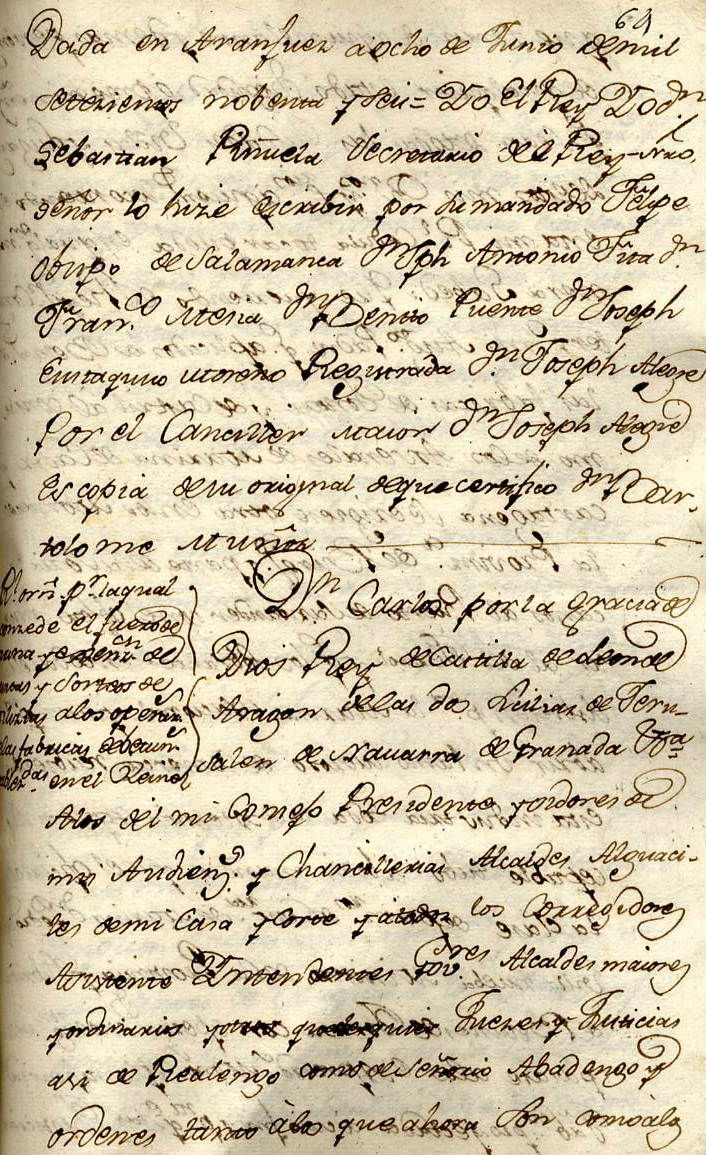 64
Dada en Aranjuez a ocho de Junio de mil
setecientos nobenta y seis = Yo El Rey Yo dn
Sebastian Piñuela Secretario del Rey nro.
señor lo hize escribir por su mandado Felipe
Obispo de Salamanca dn Jph Antonio Fita dn.
Franco. Mesia dn Benito Puente dn Joseph
Eustaquio Moreno Registrada dn. Joseph Alegre
Por el Canciller maior dn Joseph Alegre
Es copia de su original de que certifico dn Bar-
tolome Muñoz
Rl. orn. pr. la qual
concede el fuero de
y esencn. de
y Sorteos de
Milizias alos operars.
de las fabricas de
en el Reino
Dn Carlos por la gracia de
Dios Rey de Castilla de Leon de
Aragon de las dos Sicilias de Jeru-
salen de Navarra de Granada &a
Alos del mi Consejo Presidente y oidores de
mis Audiens. y Chancillerias Alcaldes Alguaci-
les de mi Casa y Corte y a todos los Corregidores
Asistente Intendentes Govres. Alcaldes maiores
y ordinarios y otros qualesquier Juezes y Justicias
asi de Realengo como de Señorio Abadengo y
ordenes tanto àlos que ahora son como àlos